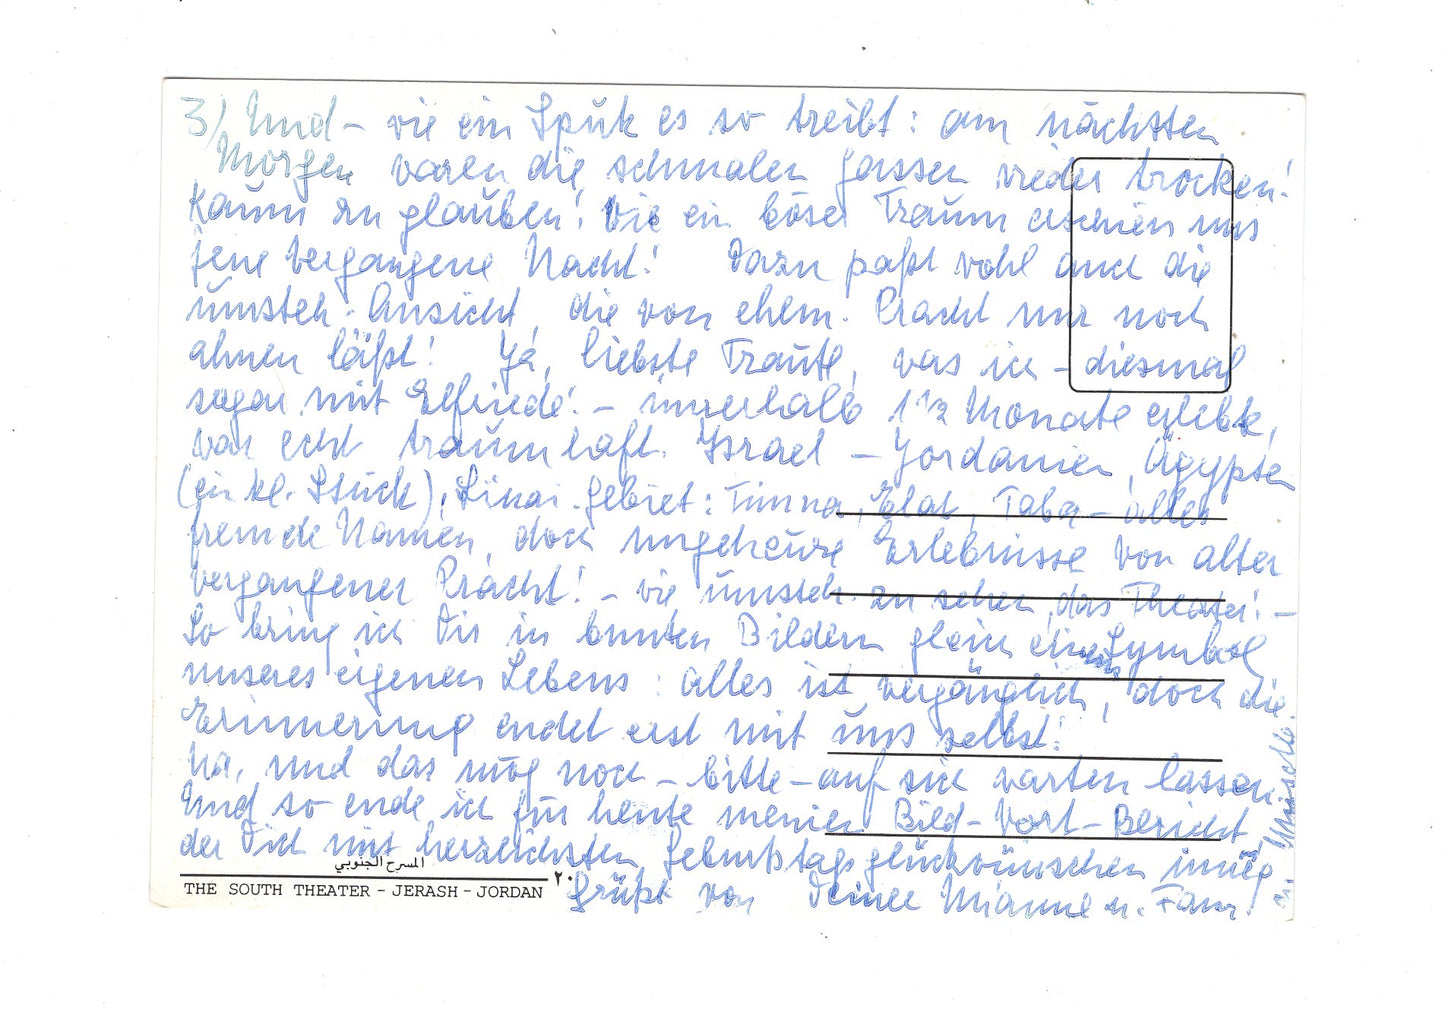 3) Und – wie ein Spuk es so treibt: am nächsten
Morgen waren die schmalen Gassen wieder trocken!
Kaum zu glauben! Wie ein böser Traum erschien uns
jene vergangene Nacht! Dazu paßt wohl auch die
umsteh. Ansicht, die von ehem. Pracht nur noch
ahnen läßt! Ja, liebste Traute, was ich – diesmal
sogar mit Elfriede! – innerhalb 1 1/2 Monate erlebte,
war echt traumhaft. Israel – Jordanien, Ägypten
(ein kl. Stück), Sinai-Gebiet: Timna, Elat, Taba – alles
fremde Namen, doch ungeheure Erlebnisse von alter
vergangener Pracht! – wie umsteh. zu sehen, das Theater! –
So bring ich Dir in bunten Bildern gleich einem Symbol
unseres eigenen Lebens: alles ist vergänglich, doch die
Erinnerung endet erst mit uns selbst!
Na, und das mög noch – bitte – auf sich warten lassen.
Und so ende ich für heute meinen Bild-Wort-Bericht,
der Dich mit herzlichsten Geburtstagsglückwünschen innig
grüßt von Deiner Mianne u. Fam.!
المسرح الجنوبي
٢٠
THE SOUTH THEATER - JERASH - JORDAN